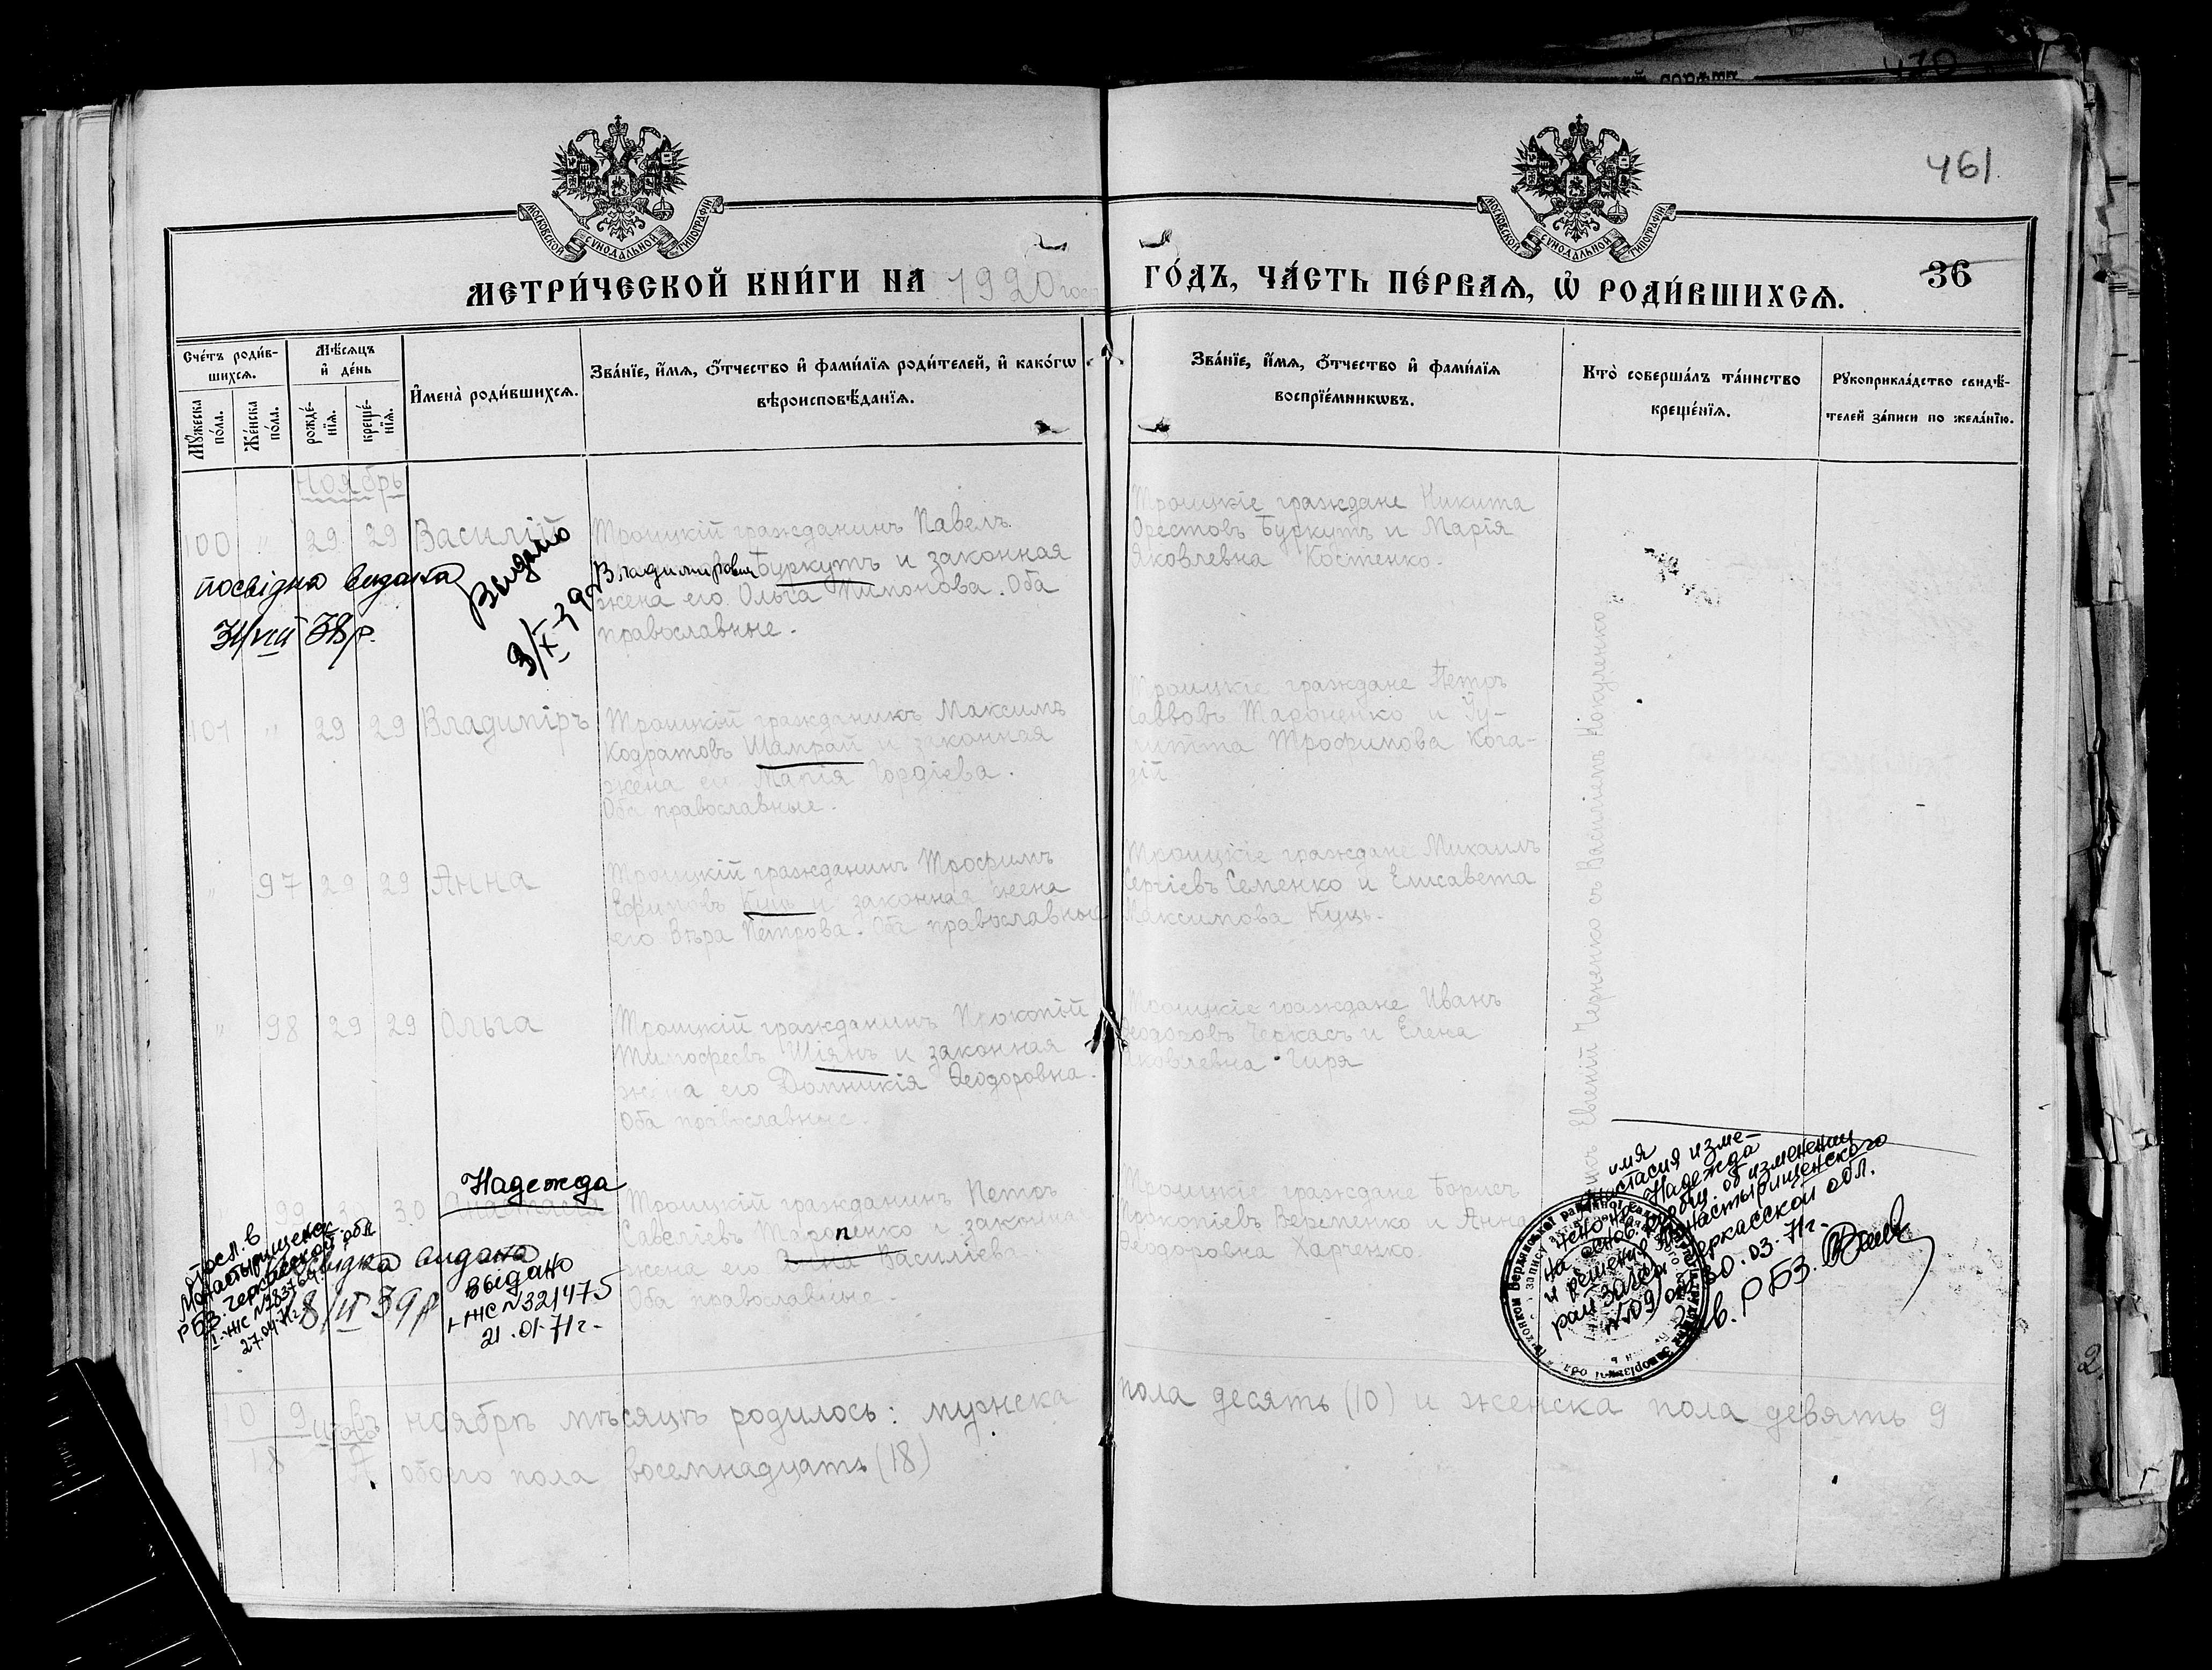 461
МОСКОВСКОЙ СѴНОДАЛЬНОЙ ТИПОГРАФІИ
МОСКОВСКОЙ СѴНОДАЛЬНОЙ ТИПОГРАФІИ
МЕТРИ́ЧЕСКОЙ КНИ́ГИ НА 1920 ГО́ДЪ, ЧА́СТЬ ПЕ́РВАѦ, Ѡ҆ РОДИ́ВШИХСѦ.
36
Сче́тъ роди́в-
шихсѧ.
Мꙋ́жеска по́ла.
Же́нска по́ла.
Мѣ́сѧцъ и҆ де́нь
рожде́-нїѧ.
креще́-нїѧ.
И҆мена̀ роди́вшихсѧ.
Зва́нїе, и҆́мѧ, ѻ҆́тчество и҆ фами́лїѧ роди́телей, и҆ како́гѡ
вѣроисповѣ́данїѧ.
Зва́нїе, и҆́мѧ, ѻ҆́тчество и҆ фами́лїѧ
воспрїе́мникѡвъ.
Кто̀ соверша́лъ та́инство
креще́нїѧ.
Рꙋкоприкла́дство свидѣ́-
телей за́писи по жела́нїю.
Ноябрь
100 " 29 29 Василій
Троицкій гражданинъ Павелъ
Владимирович Буркутъ и законная
жена его Ольга Тимонова. Оба
православные.
Троицкіе граждане Никита
Орестовъ Буркутъ и Марія
Яковлевна Костенко.
посвідка видана
31/VIII 38 р.
Видано
3/X 39
101 " 29 29 Владиміръ
Троицкій гражданинъ Максимъ
Кодратовъ Шамрай и законная
жена его Марія Гордіева.
Оба православные.
Троицкіе граждане Петръ
Саввовъ Тараненко и Іу-
литта Трофимова Кога-
" 97 29 29 Анна
Троицкій гражданинъ Трофимъ
Ефимовъ Куць и законная жена
его Вѣра Петрова. Оба православные
Троицкіе граждане Михаилъ
Сергіевъ Семенко и Елисавета
Максимова Куць.
" 98 29 29 Ольга
Троицкій гражданинъ Прокопій
Тимофеевъ Шіянъ и законная
жена его Домникія Ѳеодоровна.
Оба православные.
Троицкіе граждане Иванъ
Ѳеодоровъ Черкасъ и Елена
Яковлевна Гиря
Евгеній Черненко съ Василіемъ
Надежда
99 30 Анастасія
Троицкій гражданинъ Петръ
Савеліевъ Тарапенко и законная
жена его Анна Василіева.
Оба православные.
Троицкіе граждане Борисъ
Прокопіевъ Веременко и Анна
Ѳеодоровна Харченко.
посл. в
Монастырищенск.
РБЗ Черкасской обл
27.04.71г
видана
8/II 39 р
выдано
I-ЖС №321475
21.01.71г-
имя
Анастасия изме-
нено на Надежда
на основ. сообщ. об изменении
и решения Монастырищенского
рай ЗАГСа Черкасской обл.
№509 от 30.03.71г-
Зав. РБЗ.
10 9 Итого въ ноябрѣ мѣсяцѣ родилось: мужеска пола десять (10) и женска пола девять 9
18 А обоего пола восемнадцать (18)